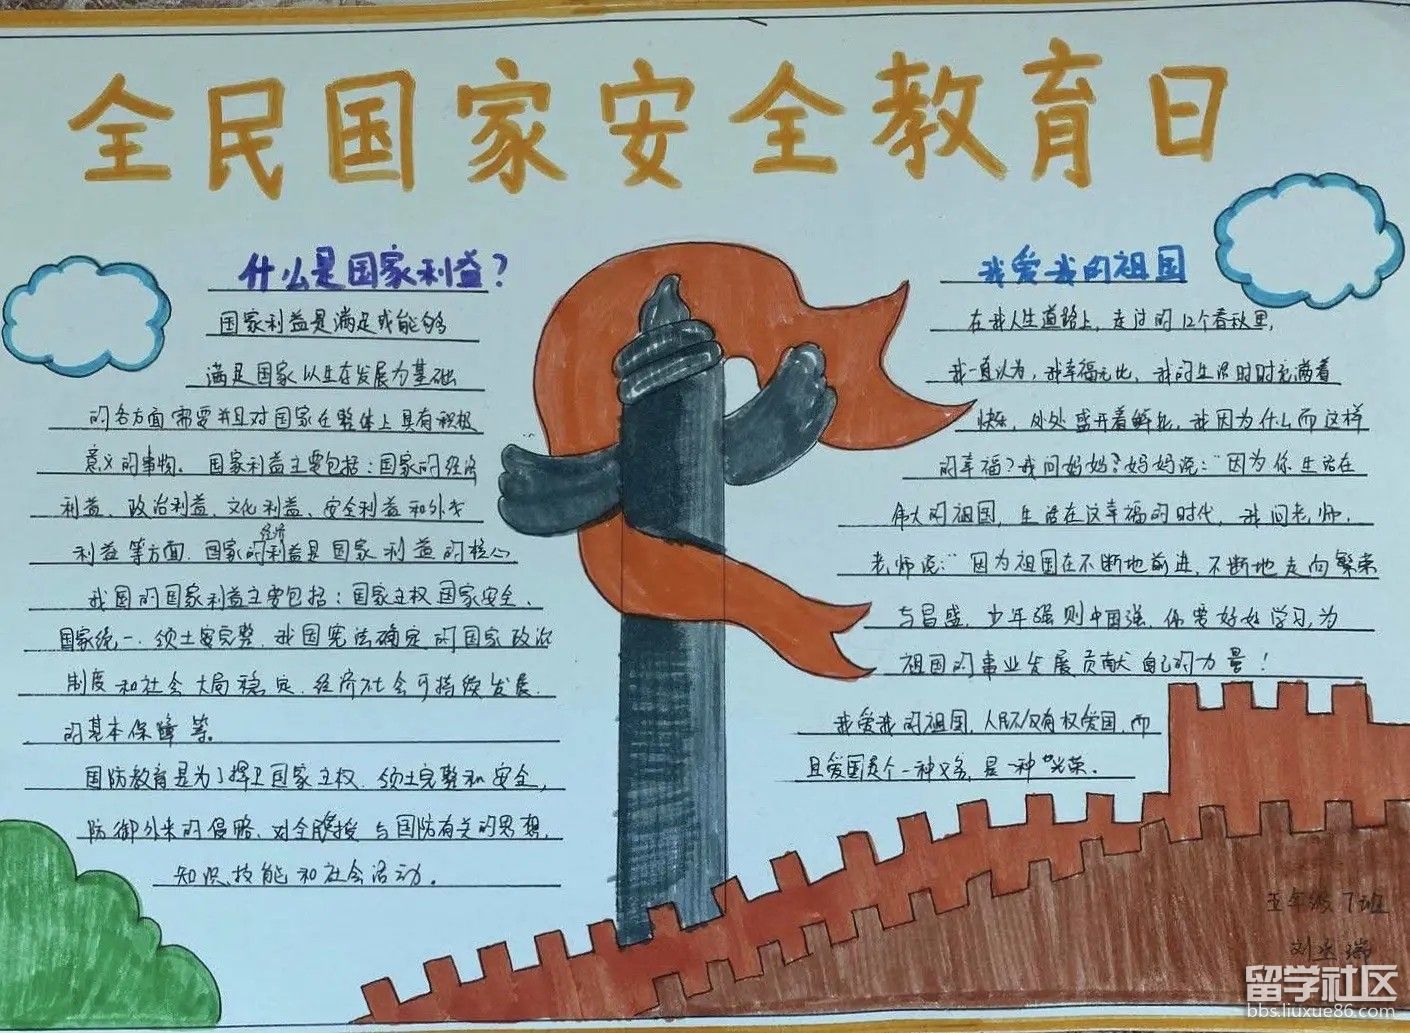 全民国家安全教育日
什么是国家利益？
国家利益是满足或能够
满足国家以生存发展为基础
的各方面需要并且对国家在整体上具有积极
意义的事物。国家利益主要包括：国家的经济
利益、政治利益、文化利益、安全利益和外交
利益等方面．国家的经济利益是国家利益的核心
我国的国家利益主要包括：国家主权国家安全、
国家统一．领土完整．我国宪法确定的国家政治
制度和社会大局稳定．经济社会可持续发展．
的基本保障等。
国防教育是为了捍卫国家主权．领土完整和安全，
防御外来的侵略．对全民与国防有关的思想．
知识、技能和社会活动。
我爱我的祖国
在我人生道路上，走过的12个春秋里，
我一直认为，我幸福无比，我的生活时时充满着
快乐，处处盛开着鲜花，我因为什么而这样
的幸福？我问妈妈？妈妈说：“因为你生活在
伟大的祖国，生活在这幸福的时代，我问老师，
老师说：“因为祖国在不断地前进，不断地走向繁荣
与昌盛，少年强则中国强，你要好好学习，为
祖国的事业发展贡献自己的力量！
我爱我的祖国，人民不仅有权爱国，而
且爱国是个一种义务，是一种“光荣．
五年级7班
刘瑞
留学社区
bbs.liuxue86.com